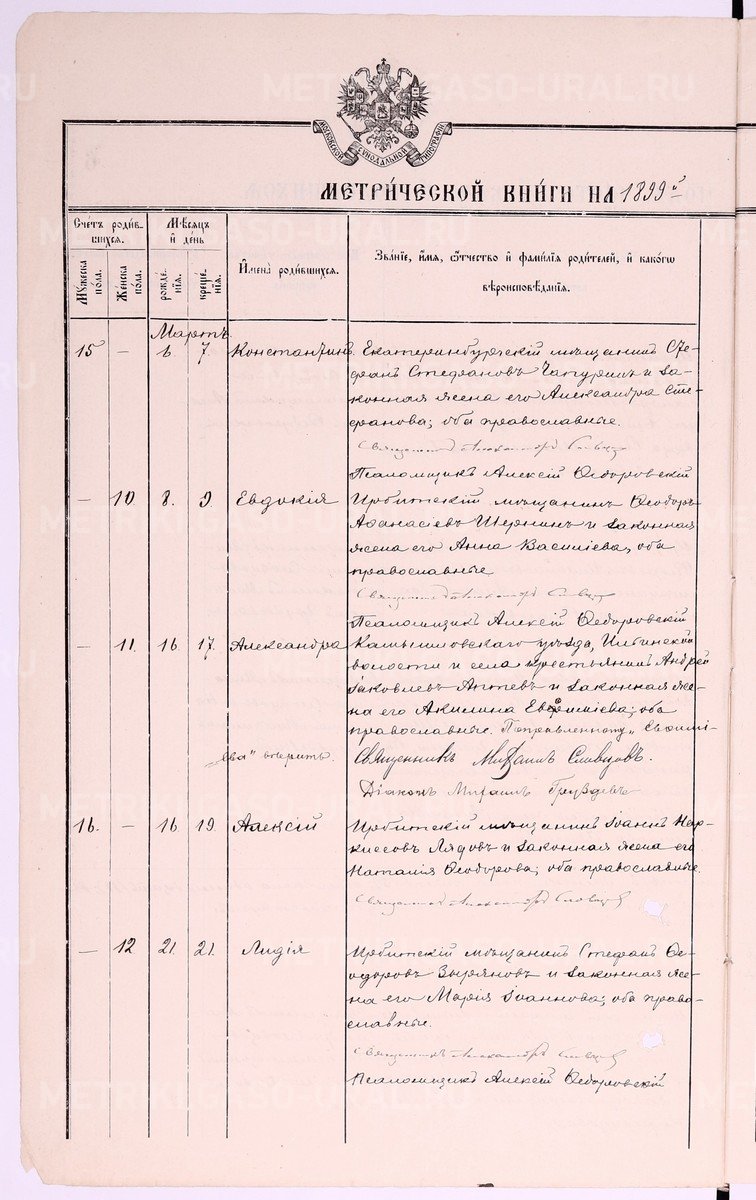 МОСКОВСКОЙ СѴНОДАЛЬНОЙ ТИПОГРАФІИ
МЕТРИ́ЧЕСКОЙ КНИ́ГИ НА 1899й
Сче́тъ роди́вшихся.
Мѣ́сяцъ и́ де́нь
Му́жеска по́ла.
Же́нска по́ла.
рожде́нія.
креще́нія.
И́мена̀ роди́вшихся.
Зва́нїе, и́мя, ѻ҆́тчество и҆ фами́лїя роди́телей, и҆ како́гѡ
вѣроисповѣ́данїя.
Мартъ
15 — 6 7 Константинъ Екатеринбургскій мѣщанинъ Сте-
фанъ Стефановъ Чапуринъ и за-
конная жена его Александра Сте-
фанова; оба православные.
Священникъ Александръ Словцовъ
Псаломщикъ Алексій Ѳедоровскій
— 10 8. 9. Евдокія Ирбитскій мѣщанинъ Ѳеодоръ
Аѳанасіевъ и законная
жена его Анна Василіева, оба
православные
Священникъ Александръ Словцовъ
Псаломщикъ Алексій Ѳедоровскій
— 11. 16 17. Александра Камышловскаго уѣзда, Ильинской
волости и села крестьянинъ Андрей
Іаковлевъ Аптевъ и законная же-
на его Акилина Евѳиміева; оба
православные. Поправленному „Евѳимі-
ева" вѣрить. Священникъ Михаилъ Словцовъ.
Діаконъ Михаилъ Груздевъ
16. — 16 19. Алексій Ирбитскій мѣщанинъ Іоаннъ Нар-
киссовъ Лядовъ и законная жена его
Наталія Ѳеодорова; оба православные.
Священникъ Александръ Словцовъ
— 12 21. 21. Лидія Ирбитскій мѣщанинъ Стефанъ Ѳе-
одоровъ Зыряновъ и законная же-
на его Марія Іоаннова; оба право-
славные.
Священникъ Александръ Словцовъ
Псаломщикъ Алексій Ѳедоровскій